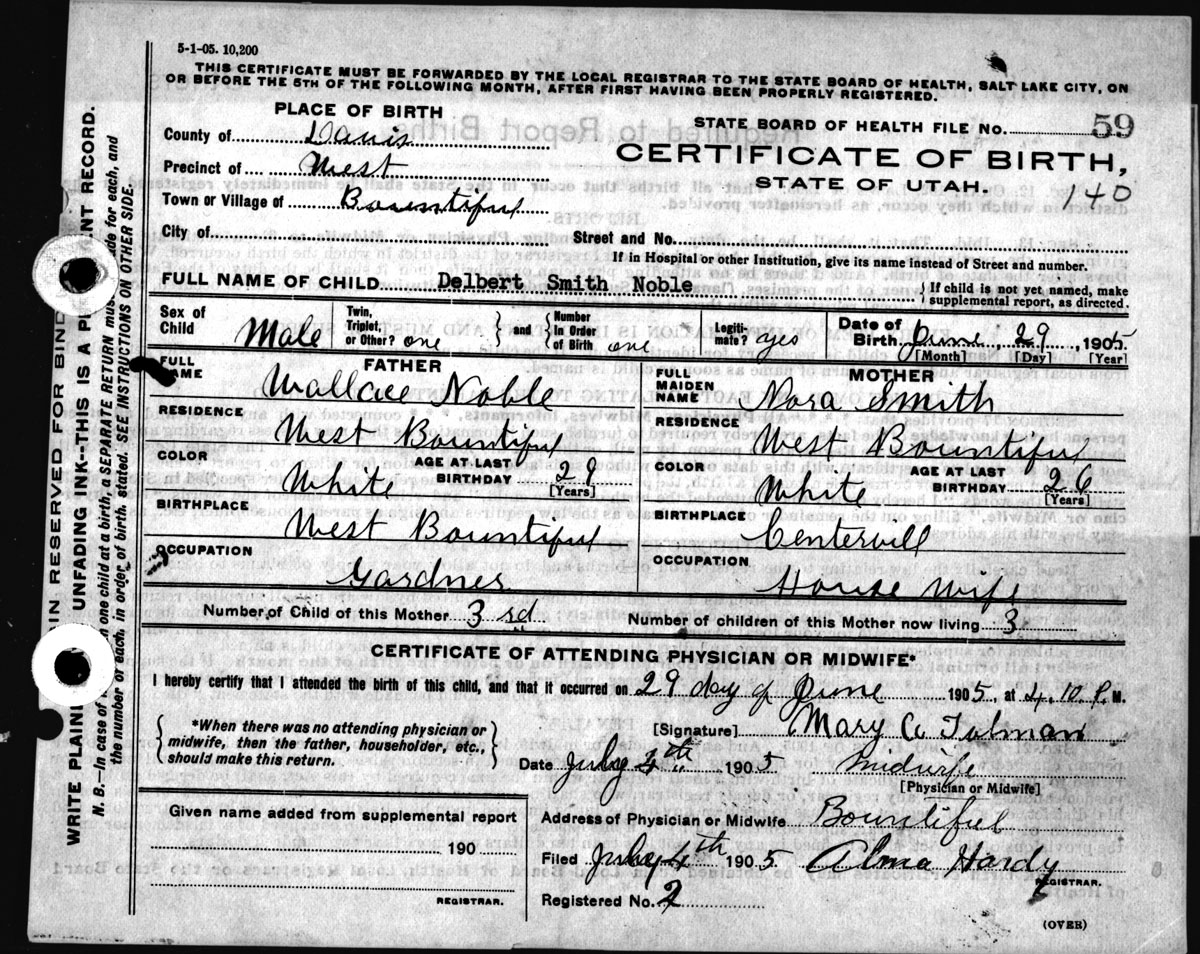 5-1-05. 10,200
THIS CERTIFICATE MUST BE FORWARDED BY THE LOCAL REGISTRAR TO THE STATE BOARD OF HEALTH, SALT LAKE CITY, ON
OR BEFORE THE 5TH OF THE FOLLOWING MONTH, AFTER FIRST HAVING BEEN PROPERLY REGISTERED.
PLACE OF BIRTH
STATE BOARD OF HEALTH FILE No. 59
County of Davis
CERTIFICATE OF BIRTH,
Precinct of West
STATE OF UTAH. 140
Town or Village of Bountiful
City of Street and No.
If in Hospital or other Institution, give its name instead of Street and number.
FULL NAME OF CHILD Delbert Smith Noble { If child is not yet named, make
supplemental report, as directed.
Sex of Child Male
Twin, Triplet, or Other? one } and { Number In Order of Birth one
Legiti- mate? yes
Date of Birth June, 29, 1905
[Month] [Day] [Year]
FATHER
FULL NAME Wallace Noble
RESIDENCE
West Bountiful
COLOR White AGE AT LAST BIRTHDAY 29
[Years]
BIRTHPLACE West Bountiful
OCCUPATION
Gardner
MOTHER
FULL MAIDEN NAME Nora Smith
RESIDENCE
West Bountiful
COLOR White AGE AT LAST BIRTHDAY 26
[Years]
BIRTHPLACE Centervill
OCCUPATION
House Wife
Number of Child of this Mother 3 rd Number of children of this Mother now living 3
CERTIFICATE OF ATTENDING PHYSICIAN OR MIDWIFE*
I hereby certify that I attended the birth of this child, and that it occurred on 29 day of June 1905, at 4.10 P.M.
{ *When there was no attending physician or
midwife, then the father, householder, etc.,
should make this return. }
[Signature] Mary A Tolman
Date July 4th 1905 Midwife
[Physician or Midwife]
Given name added from supplemental report
190
REGISTRAR.
Address of Physician or Midwife Bountiful
Filed July 4th 1905 Alma Hardy
REGISTRAR.
Registered No. 2
(OVER)
IN RESERVED FOR BIND
WRITE PLAIN UNFADING INK--THIS IS A P NT RECORD.
N. B.--In case of n one child at a birth, a SEPARATE RETURN mus made for each, and
the number of each, in order of birth, stated. SEE INSTRUCTIONS ON OTHER SIDE.